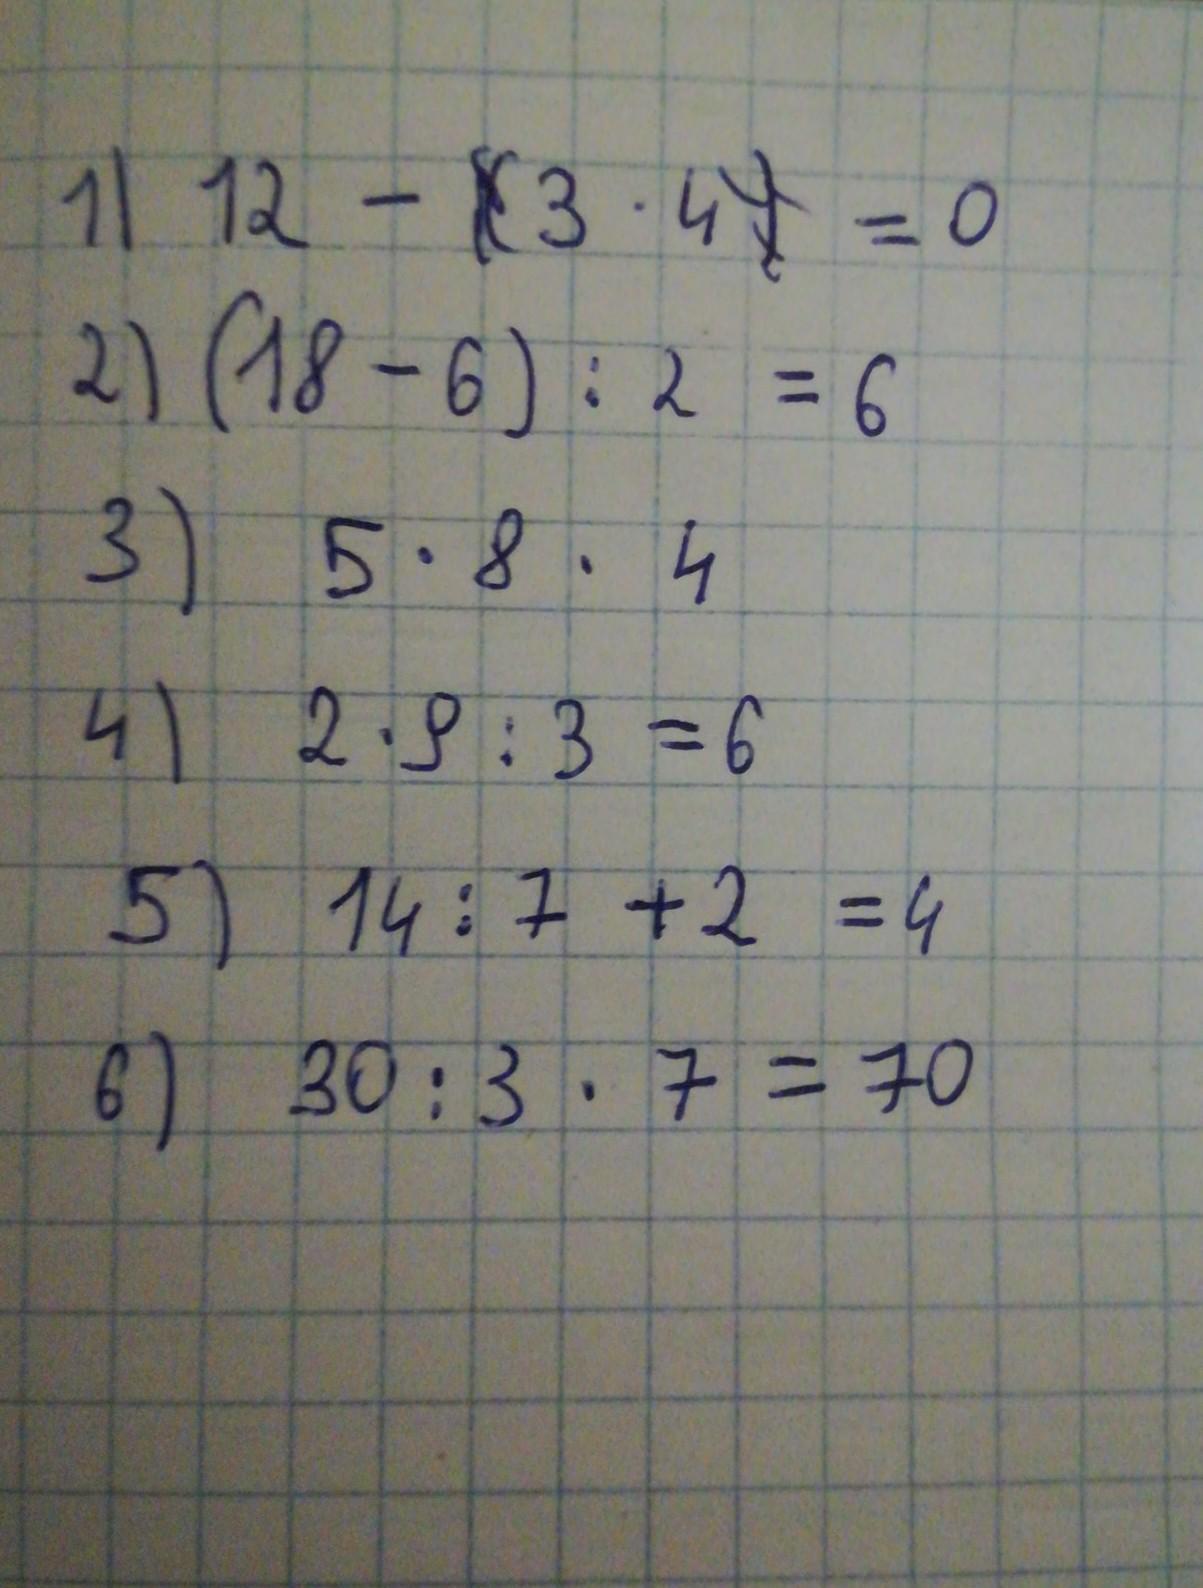 1) 12 - (3 · 4) = 0
2) (18 - 6) : 2 = 6
3) 5 · 8 · 4
4) 2 · 9 : 3 = 6
5) 14 : 7 + 2 = 4
6) 30 : 3 · 7 = 70